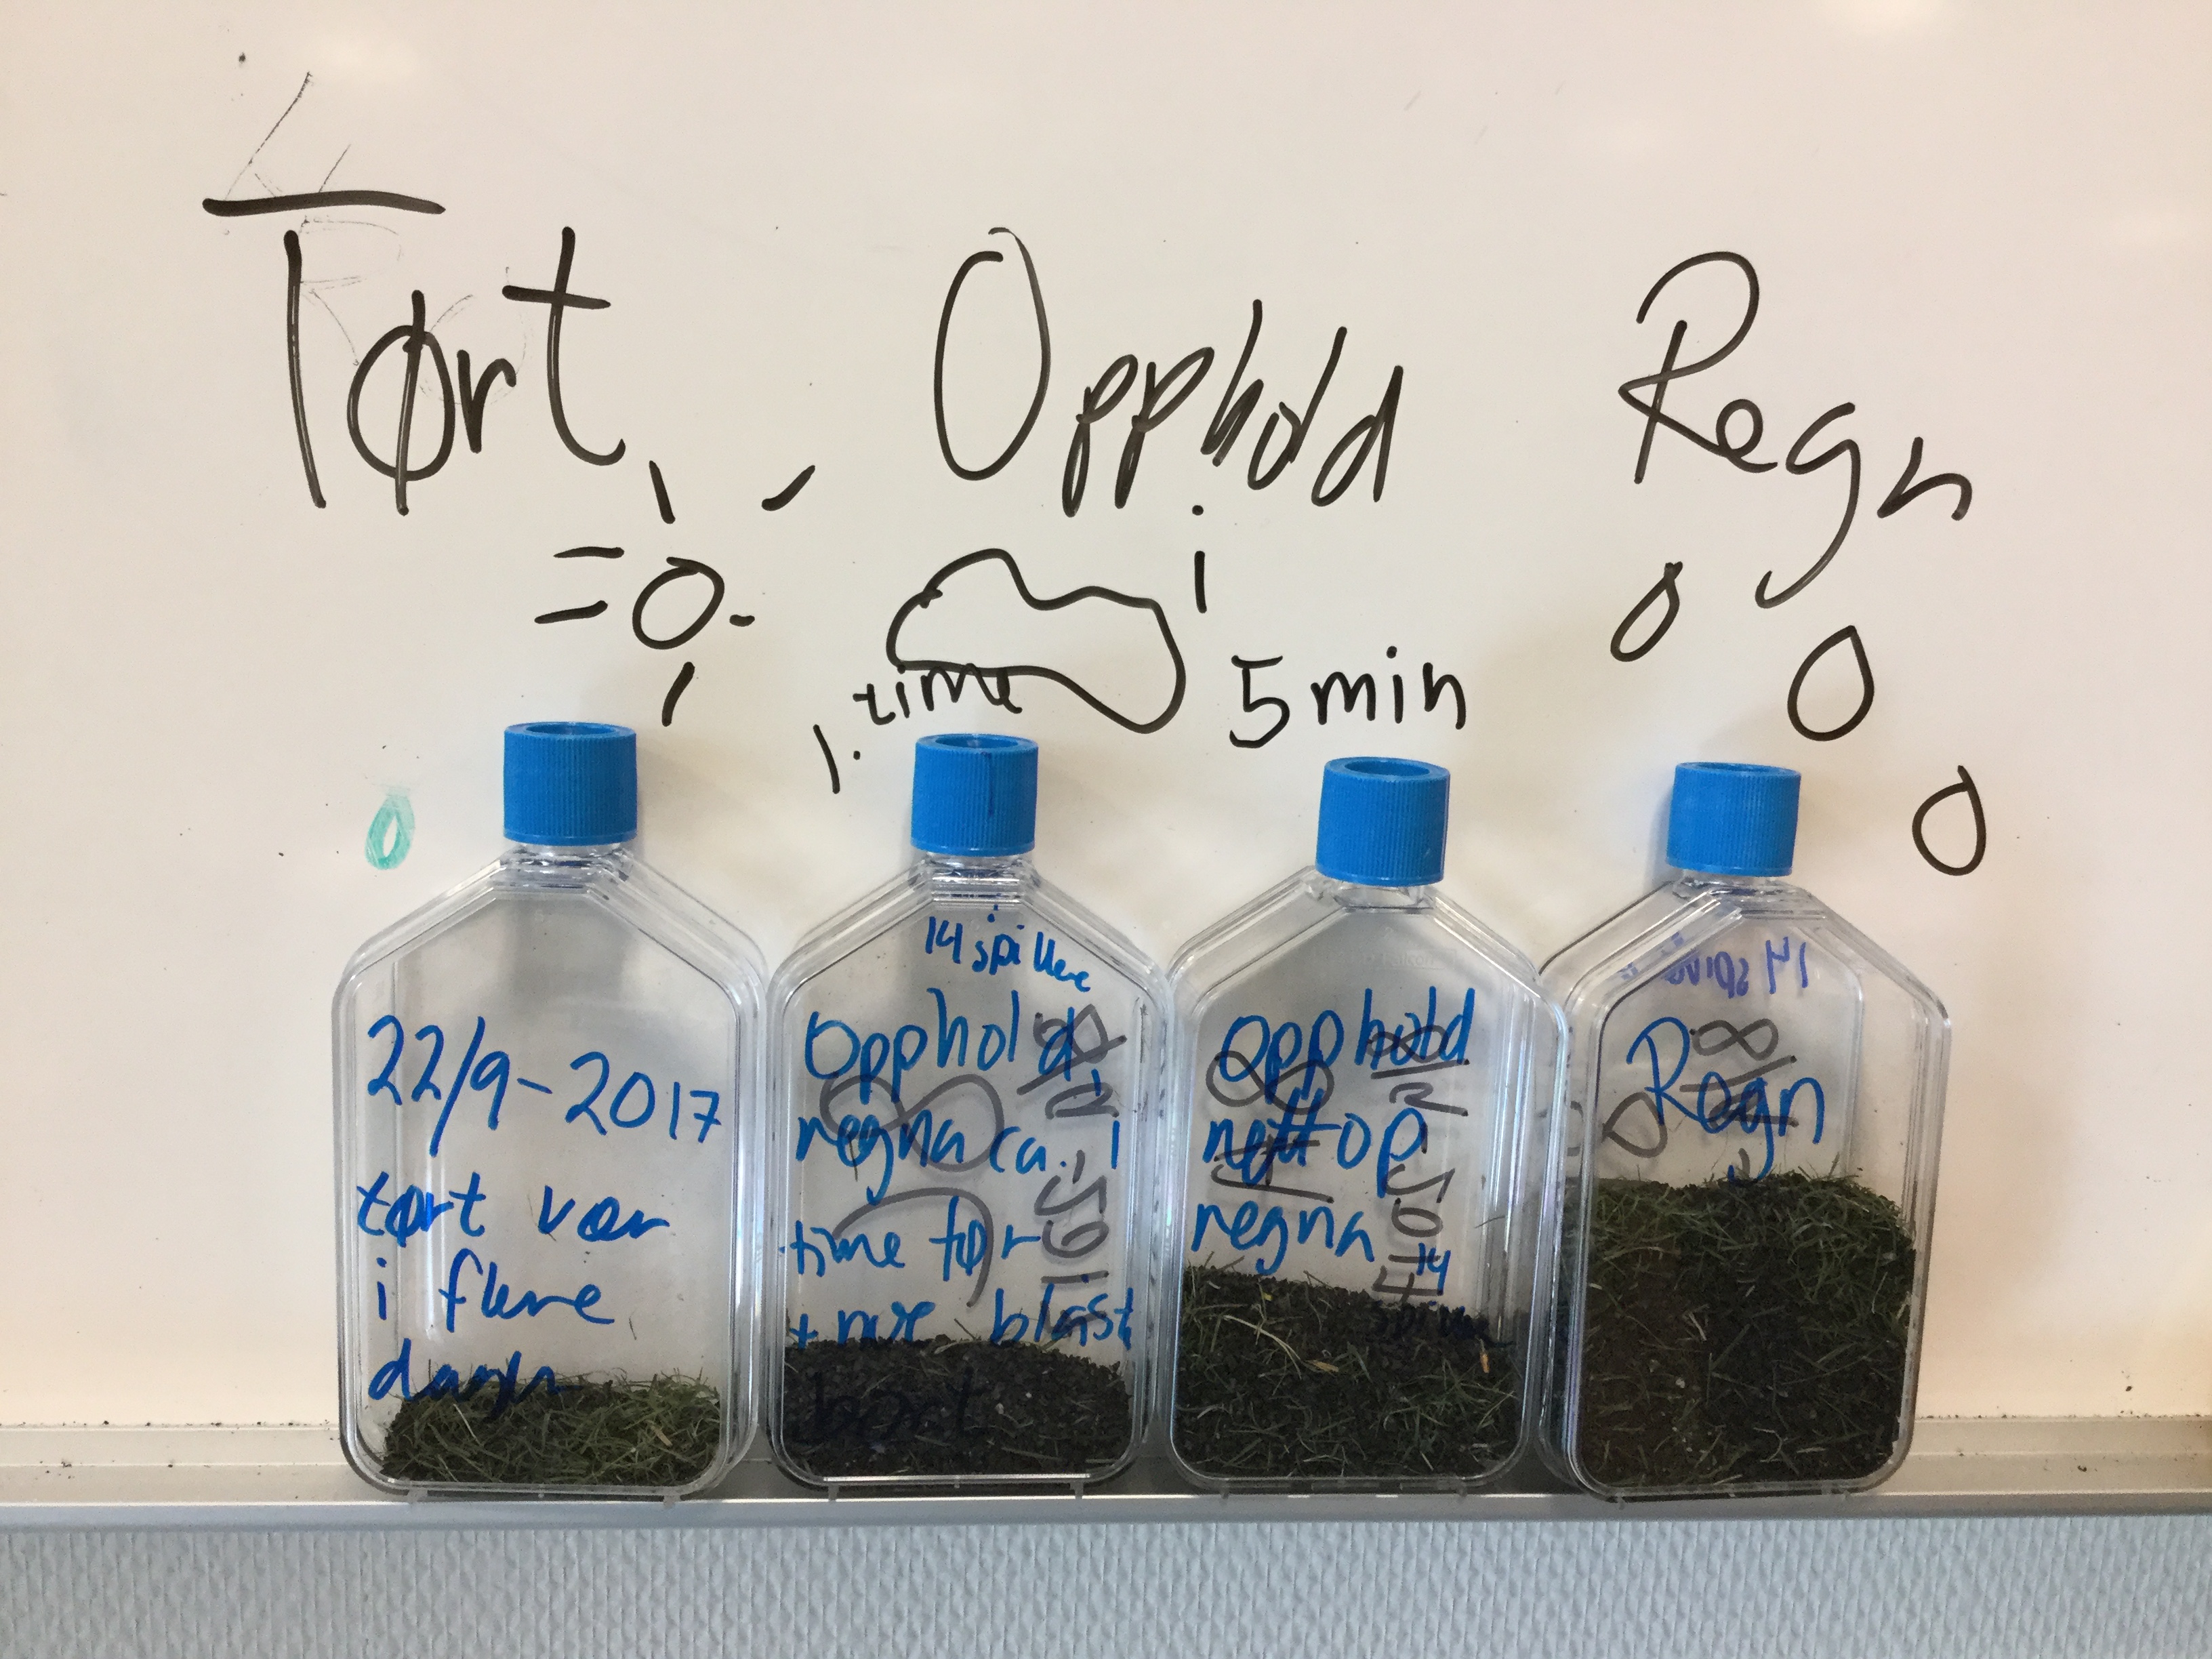 Tørt
Opphold
Regn
1. time
5 min
22/9-2017
tørt vær
i flere
dager
14 spillere
Opphold,
regna ca. 1
time før
+ mye blåst
bort
Opphold
nettop
regna
14
14
Regn